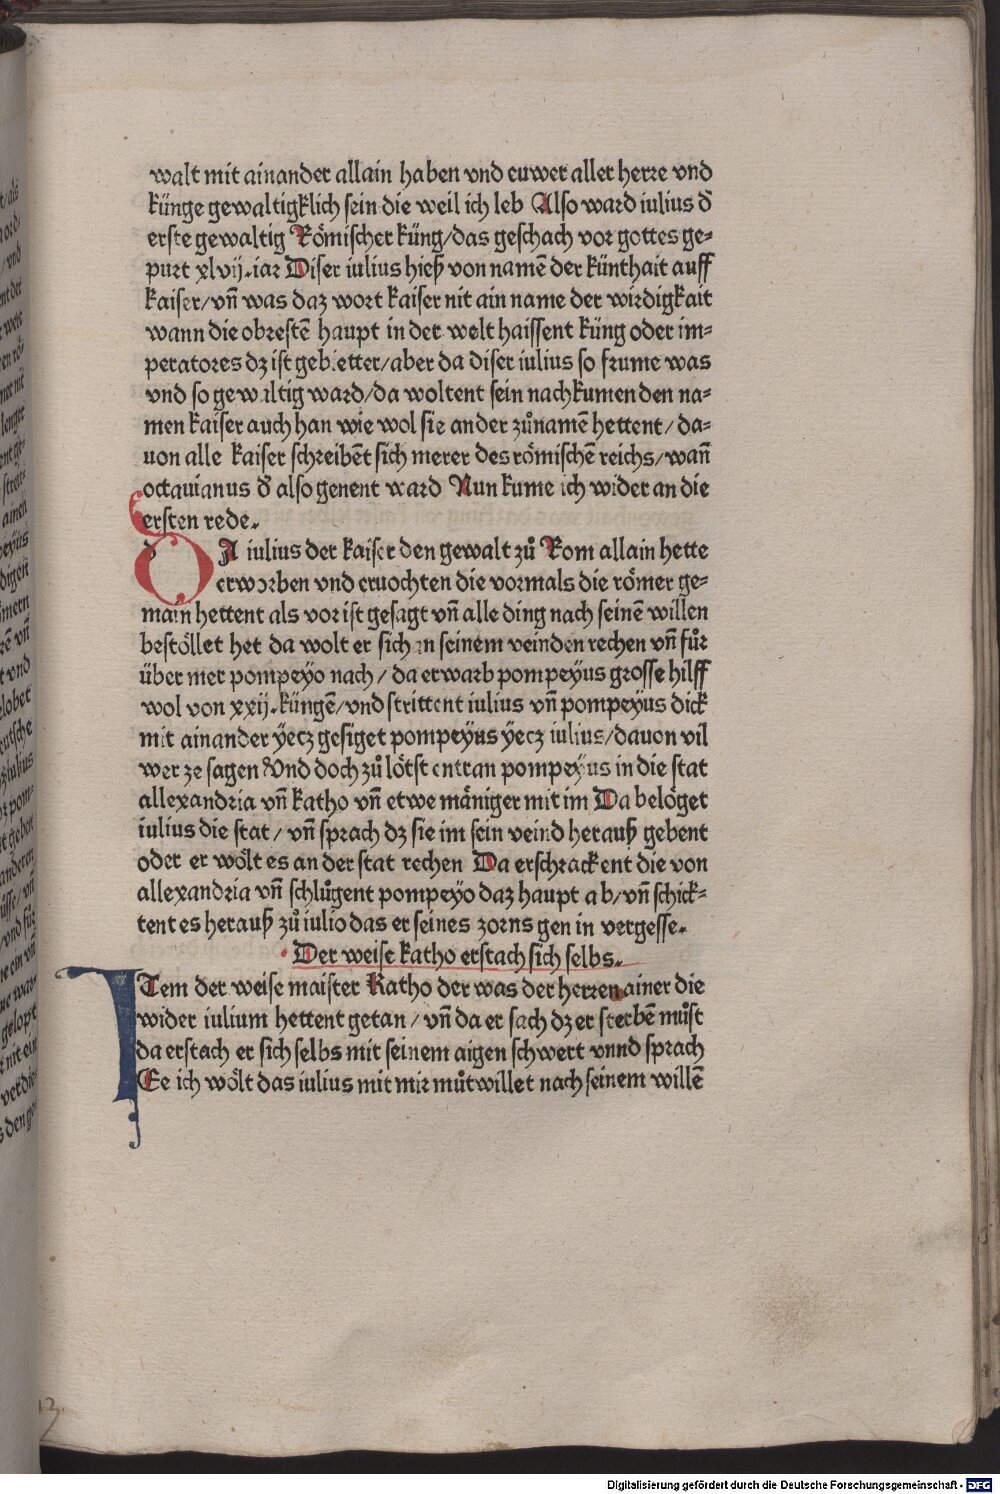 walt mit ainander allain haben vnd euwer aller herre vnd
künge gewaltigklich sein die weil ich leb Also ward iulius d̕
erste gewaltig Römischer küng/das geschach vor gottes ge⸗
purt xlvij.iar Diser iulius hieß von namē der künthait auff
kaiser/vn̄ was daz wort kaiser nit ain name der wirdigkait
wann die obrestē haupt in der welt haissent küng oder im⸗
peratores dz ist gebietter/aber da diser iulius so frume was
vnd so gewaltig ward/da woltent sein nachkumen den na⸗
men kaiser auch han wie wol sie ander zůnamē hettent/da⸗
uon alle kaiser schreibēt sich merer des römischē reichs/wan̄
octauianus d̕ also genent ward Nun kume ich wider an die
ersten rede.
dA iulius der kaiser den gewalt zů Rom allain hette
erworben vnd eruochten die vormals die römer ge⸗
main hettent als vor ist gesagt vn̄ alle ding nach seinē willen
bestöllet het da wolt er sich an seinem veinden rechen vn̄ fůr
über mer pompeyo nach/da erwarb pompeyus grosse hilff
wol von xxij.küngē/vnd strittent iulius vn̄ pompeyus dick
mit ainander yecz gesiget pompeyus yecz iulius/dauon vil
wer ze sagen Vnd doch zů lötst entran pompeyus in die stat
allexandria vn̄ katho vn̄ etwe mäniger mit im Da belöget
iulius die stat/vn̄ sprach dz sie im sein veind herauß gebent
oder er wölt es an der stat rechen Da erschrackent die von
allexandria vn̄ schlůgent pompeyo daz haupt ab/vn̄ schick⸗
tent es herauß zů iulio das er seines zorns gen in vergesse.
Der weise katho erstach sich selbs.
ITem der weise maister Katho der was der herren ainer die
wider iulium hettent getan/vn̄ da er sach dz er sterbē můst
da erstach er sich selbs mit seinem aigen schwert vnnd sprach
Ee ich wölt das iulius mit mir můtwillet nach seinem willē
Digitalisierung gefördert durch die Deutsche Forschungsgemeinschaft - DFG